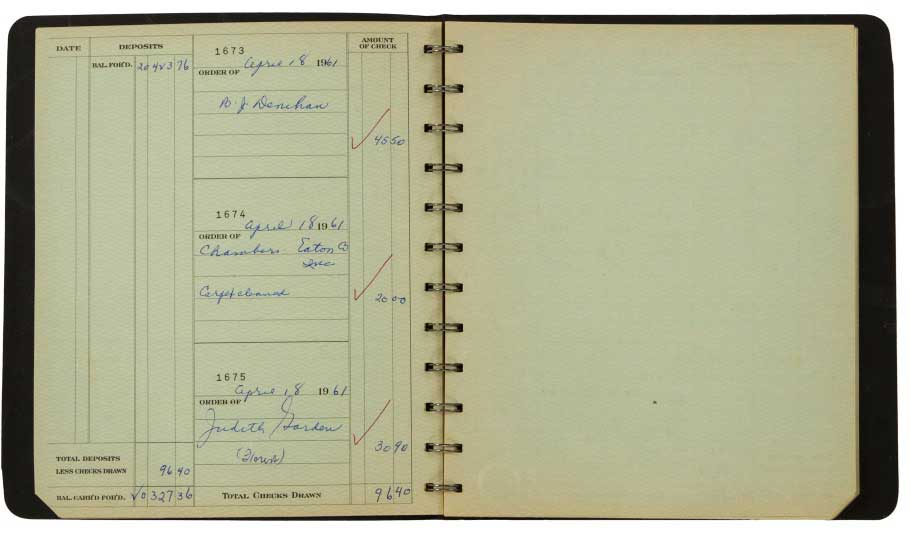 DATE DEPOSITS AMOUNT OF CHECK
BAL. FOR'D. 20423 76
1673
April 18 1961
ORDER OF
B. J. Denihan
45 50
1674
April 18 1961
ORDER OF
Chambers Eaton Co
Inc
Carpet cleaned
20 00
1675
April 18 1961
ORDER OF
Judith Garden
30 90
TOTAL DEPOSITS
LESS CHECKS DRAWN 96 40
BAL. CARR'D FOR'D. 20327 36 TOTAL CHECKS DRAWN 96 40